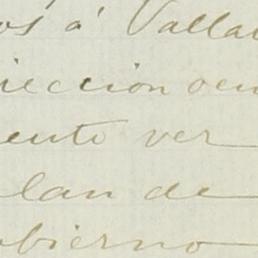 os á Valla
irección
ento ver
lan de
obierno